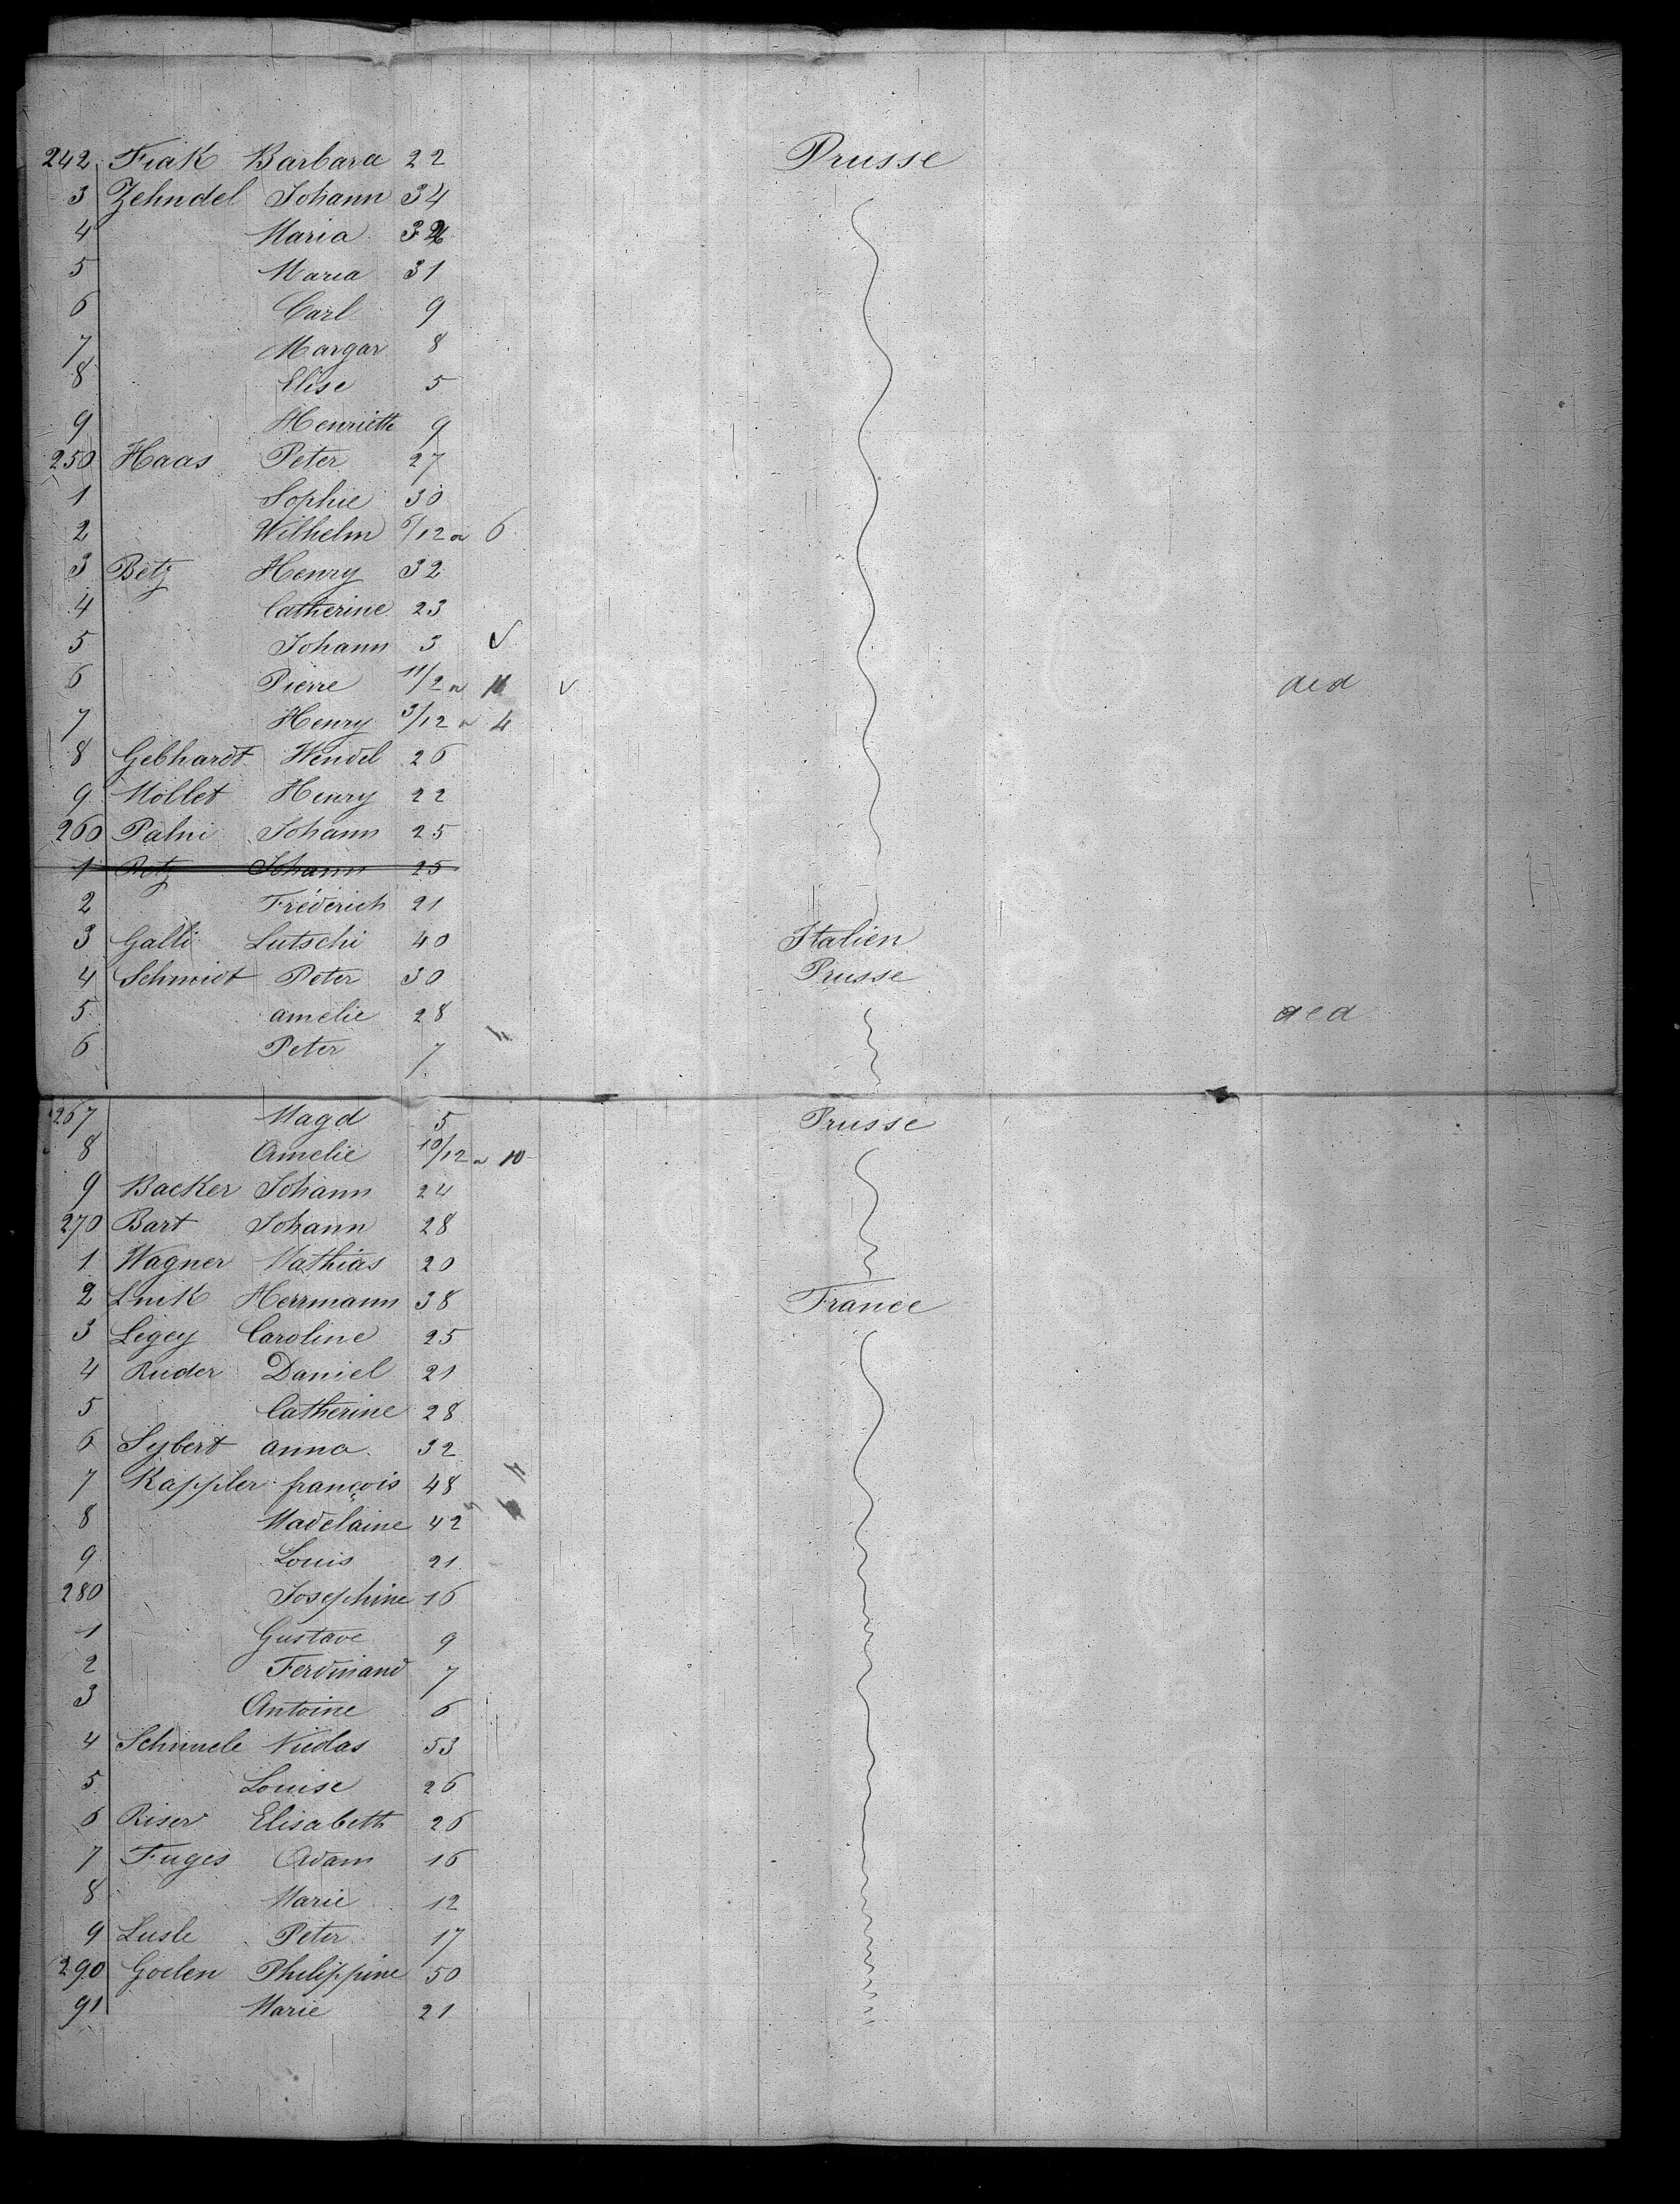 242 Fiak Barbara 22 Prusse
3 Zehndel Johann 34
4 Maria 32
5 Maria 31
6 Carl 9
7 Margar 8
8 Elise 5
9 Henriette 9
250 Haas Peter 27
1 Sophie 30
2 Wilhelm 6/12 a 6
3 Betz Henry 32
4 Catherine 23
5 Johann 3 ✓
6 Pierre 11/2 a ✓ ded
7 Henry 3/12 a 4
8 Gebhardt Wendel 26
9 Mollet Henry 22
260 Palni Johann 25
1 Retz Johann 25
2 Fréderich 21
3 Galli Lutschi 40 Italien
4 Schmidt Peter 30 Prusse
5 amelie 28 ded
6 Peter 7
267 Magd 5 Prusse
8 Amelie 10/12 a 10
9 Backer Johann 24
270 Bart Johann 28
1 Wagner Mathias 20
2 Lnik Herrmann 38 France
3 Legey Caroline 25
4 Ruder Daniel 21
5 Catherine 28
6 Sybert anna 32
7 Kappler françois 48
8 Madelaine 42
9 Louis 21
280 Josephine 16
1 Gustave 9
2 Ferdinand 7
3 Antoine 6
4 Schmele Nicolas 53
5 Louise 26
6 Riser Elisabeth 26
7 Fuges Adam 16
8 Marie 12
9 Lusle Peter 17
290 Goelen Philippine 50
91 Marie 21